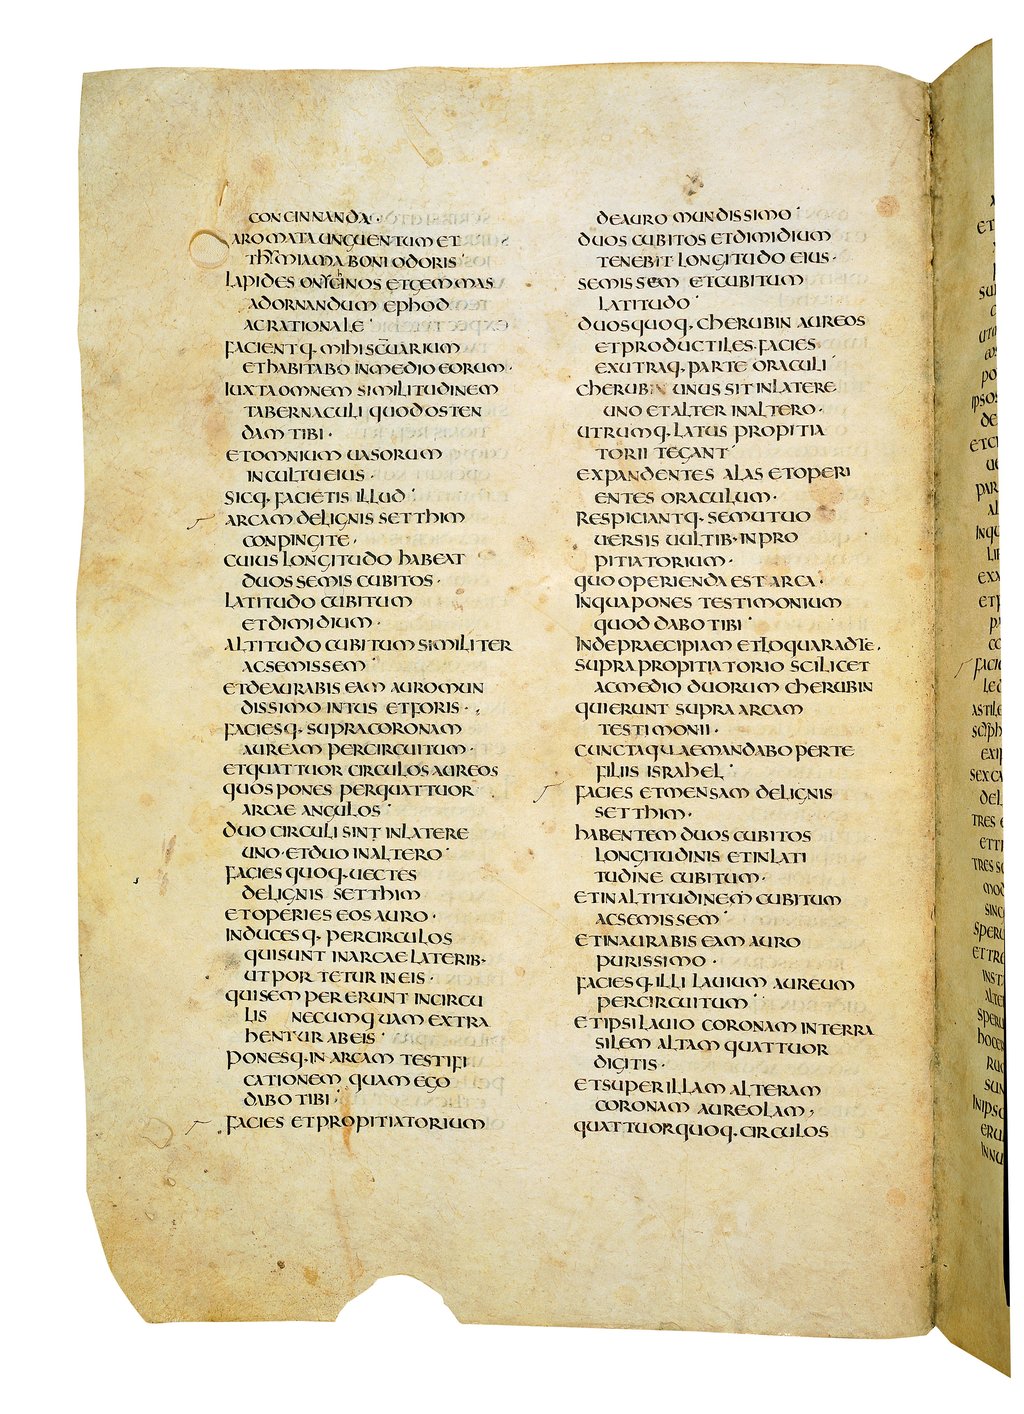 CONCINNANDA·
AROMATA UNGUENTUM ET
THYMIAMA BONI ODORIS
LAPIDES ONYCHINOS ET GEMMAS
ADORNANDUM EPHOD
AC RATIONALE
FACIENTQ· MIHI SCUARIUM
ET HABITABO IN MEDIO EORUM·
IUXTA OMNEM SIMILITUDINEM
TABERNACULI QUOD OSTEN
DAM TIBI·
ET OMNIUM UASORUM
IN CULTU EIUS·
SICQ· FACIETIS ILLUD
ARCAM DE LIGNIS SETTHIM
CONPINGITE·
CUIUS LONGITUDO HABEAT
DUOS SEMIS CUBITOS·
LATITUDO CUBITUM
ET DIMIDIUM·
ALTITUDO CUBITUM SIMILITER
AC SEMISSEM
ET DEAURABIS EAM AURO MUN
DISSIMO INTUS ET FORIS·
FACIESQ· SUPRA CORONAM
AUREAM PER CIRCUITUM·
ET QUATTUOR CIRCULOS AUREOS
QUOS PONES PER QUATTUOR
ARCAE ANGULOS
DUO CIRCULI SINT IN LATERE
UNO· ET DUO IN ALTERO
FACIES QUOQ· UECTES
DE LIGNIS SETTHIM
ET OPERIES EOS AURO·
INDUCESQ· PER CIRCULOS
QUI SUNT IN ARCAE LATERIB·
UT PORTETUR IN EIS·
QUI SEMPER ERUNT IN CIRCU
LIS NECUMQUAM EXTRA
HENTUR AB EIS
PONESQ· IN ARCAM TESTIFI
CATIONEM QUAM EGO
DABO TIBI·
FACIES ET PROPITIATORIUM
DE AURO MUNDISSIMO
DUOS CUBITOS ET DIMIDIUM
TENEBIT LONGITUDO EIUS·
SEMISSEM ET CUBITUM
LATITUDO
DUOS QUOQ· CHERUBIN AUREOS
ET PRODUCTILES· FACIES
EX UTRAQ· PARTE ORACULI
CHERUBIN UNUS SIT IN LATERE
UNO ET ALTER IN ALTERO·
UTRUMQ· LATUS PROPITIA
TORII TEGANT
EXPANDENTES ALAS ET OPERI
ENTES ORACULUM·
RESPICIANTQ· SE MUTUO
UERSIS UULTIB· IN PRO
PITIATORIUM·
QUO OPERIENDA EST ARCA·
IN QUA PONES TESTIMONIUM
QUOD DABO TIBI
INDE PRAECIPIAM ET LOQUAR AD TE·
SUPRA PROPITIATORIO SCILICET
AC MEDIO DUORUM CHERUBIN
QUI ERUNT SUPRA ARCAM
TESTIMONII·
CUNCTA QUAE MANDABO PER TE
FILIIS ISRAHEL
FACIES ET MENSAM DE LIGNIS
SETTHIM·
HABENTEM DUOS CUBITOS
LONGITUDINIS ET IN LATI
TUDINE CUBITUM·
ET IN ALTITUDINEM CUBITUM
AC SEMISSEM
ET INAURABIS EAM AURO
PURISSIMO·
FACIESQ· ILLI LAUIUM AUREUM
PER CIRCUITUM
ET IPSI LAUIO CORONAM INTERRA
SILEM ALTAM QUATTUOR
DIGITIS·
ET SUPER ILLAM ALTERAM
CORONAM AUREOLAM,
QUATTUOR QUOQ· CIRCULOS